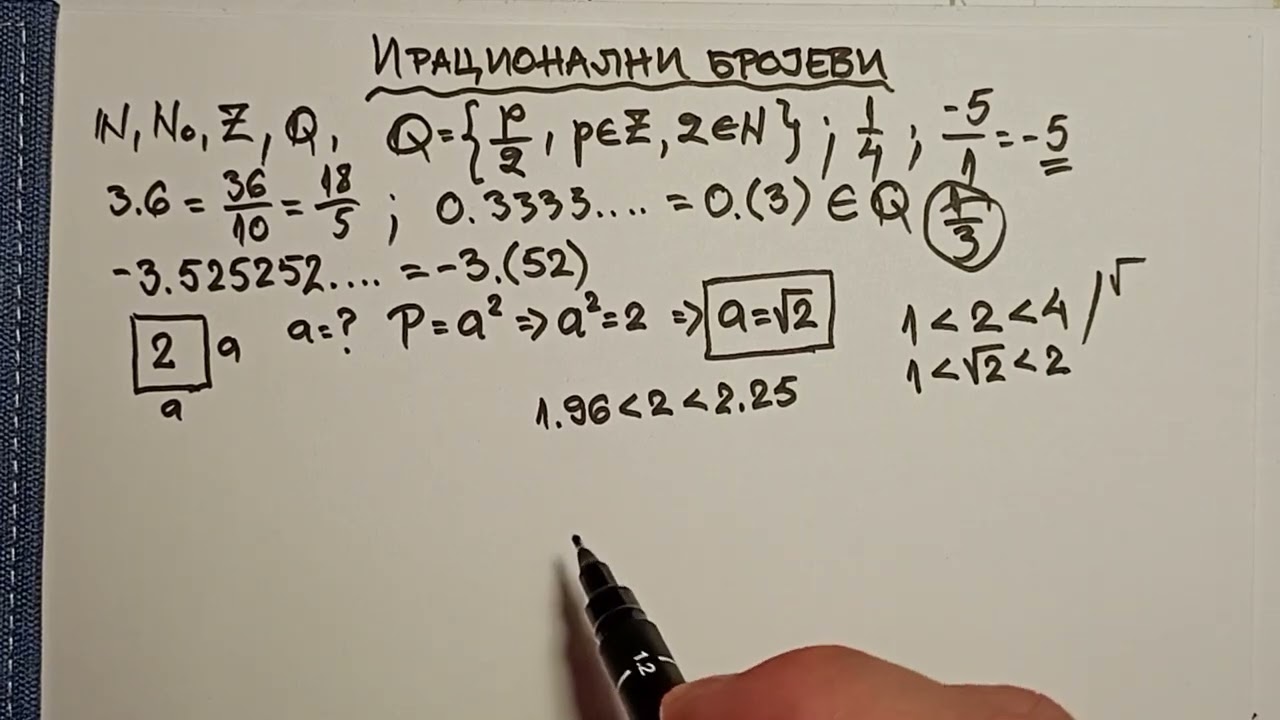 ИРАЦИОНАЛНИ БРОЈЕВИ
N, N₀, Z, Q, Q={p/2, p∈Z, 2∈N}; 1/4; -5/1=-5
3.6 = 36/10 = 18/5; 0.3333.... = 0.(3) ∈ Q 1/3
-3.525252.... = -3.(52)
2 a a=? P=a² ⇒ a²=2 ⇒ a=√2 1<2<4 /√
a 1<√2<2
1.96<2<2.25
1.2